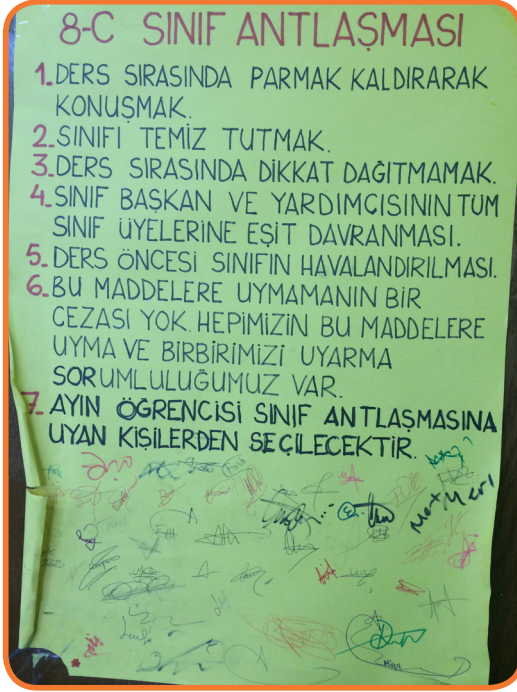 8-C SINIF ANTLAŞMASI
1. DERS SIRASINDA PARMAK KALDIRARAK
KONUŞMAK.
2. SINIFI TEMİZ TUTMAK.
3. DERS SIRASINDA DİKKAT DAĞITMAMAK.
4. SINIF BAŞKAN VE YARDIMCISININ TÜM
SINIF ÜYELERİNE EŞİT DAVRANMASI.
5. DERS ÖNCESİ SINIFIN HAVALANDIRILMASI.
6. BU MADDELERE UYMAMANIN BİR
CEZASI YOK. HEPİMİZİN BU MADDELERE
UYMA VE BİRBİRİMİZİ UYARMA
SORUMLULUĞUMUZ VAR.
7. AYIN ÖĞRENCİSİ SINIF ANTLAŞMASINA
UYAN KİŞİLERDEN SEÇİLECEKTİR.